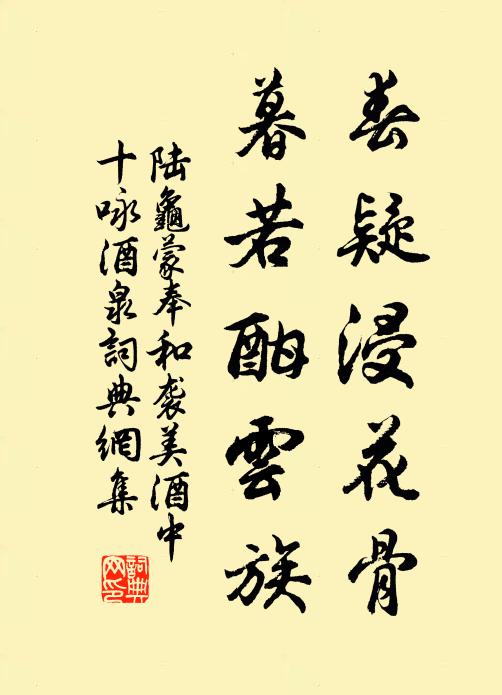 春疑浸花骨
暮若酣雲族
陆龜蒙奉和袭美酒中
十咏酒泉詞典網集
詞典
网印